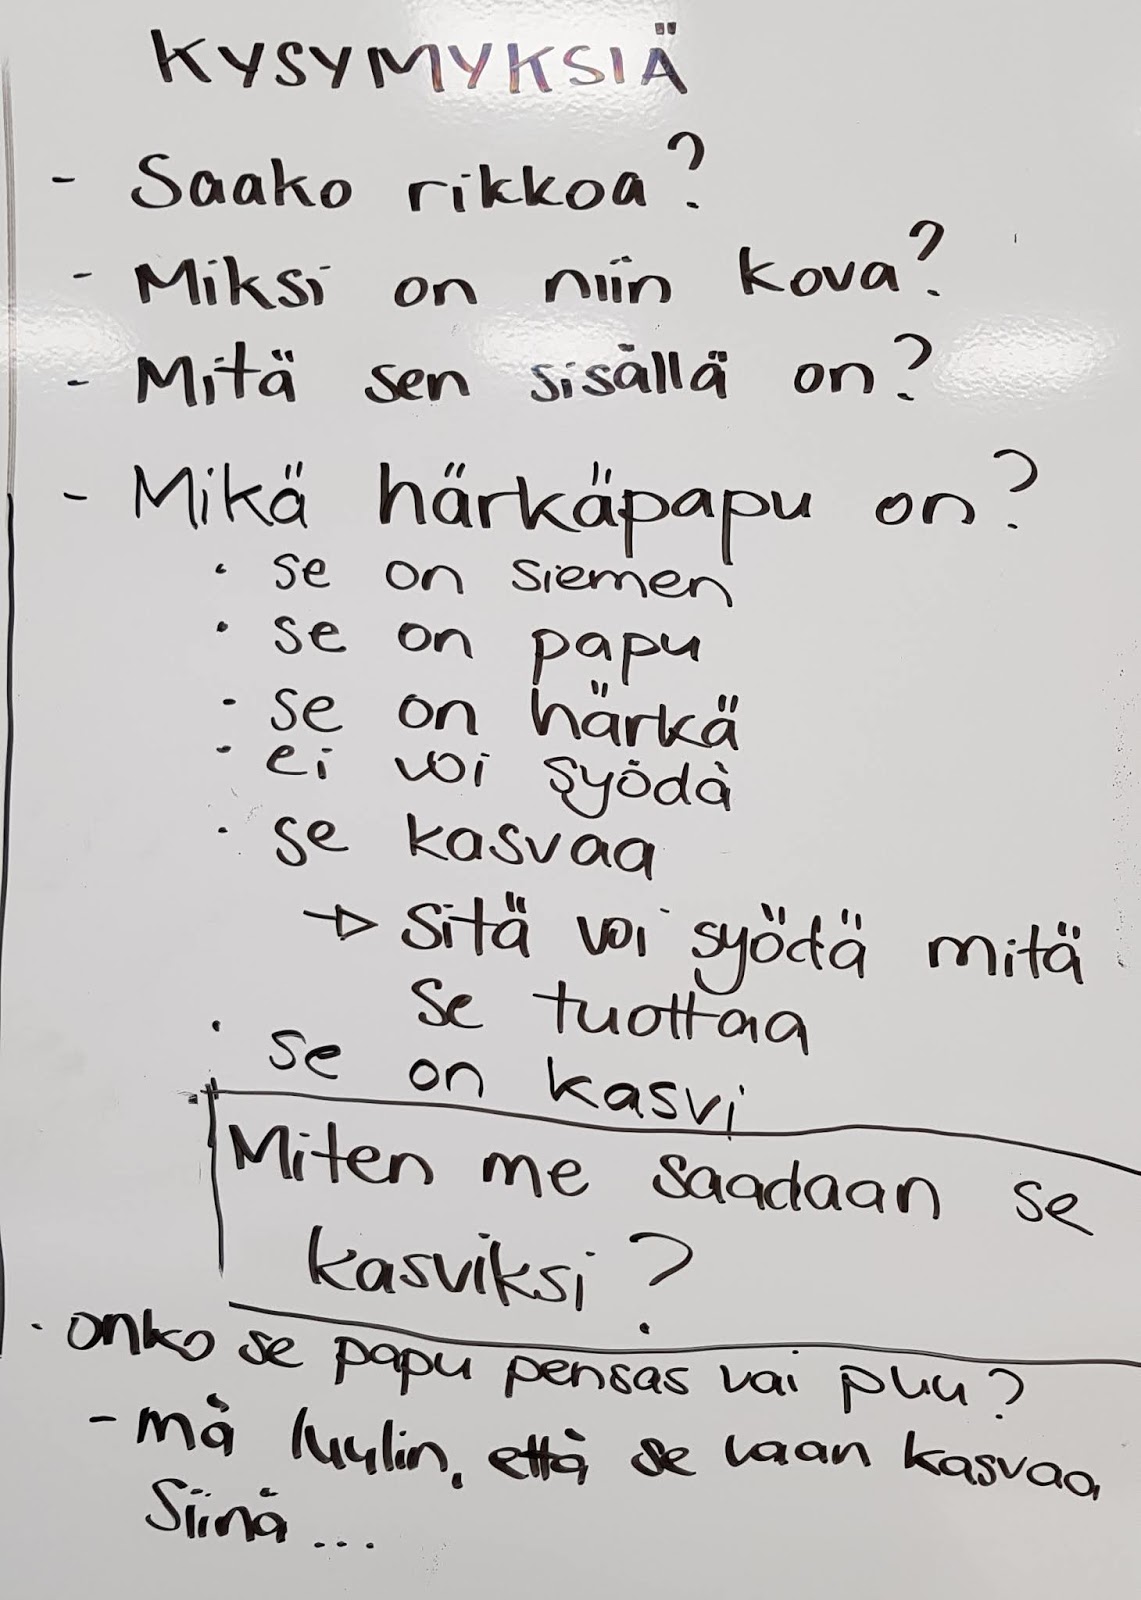 KYSYMYKSIÄ
- Saako rikkoa?
- Miksi on niin kova?
- Mitä sen sisällä on?
- Mikä härkäpapu on?
• se on siemen
• se on papu
• se on härkä
• ei voi syödä
• se kasvaa
→ Sitä voi syödä mitä
se tuottaa
• se on kasvi
Miten me saadaan se
kasviksi?
• onko se papu pensas vai puu?
- mä luulin, että se vaan kasvaa
Siinä...